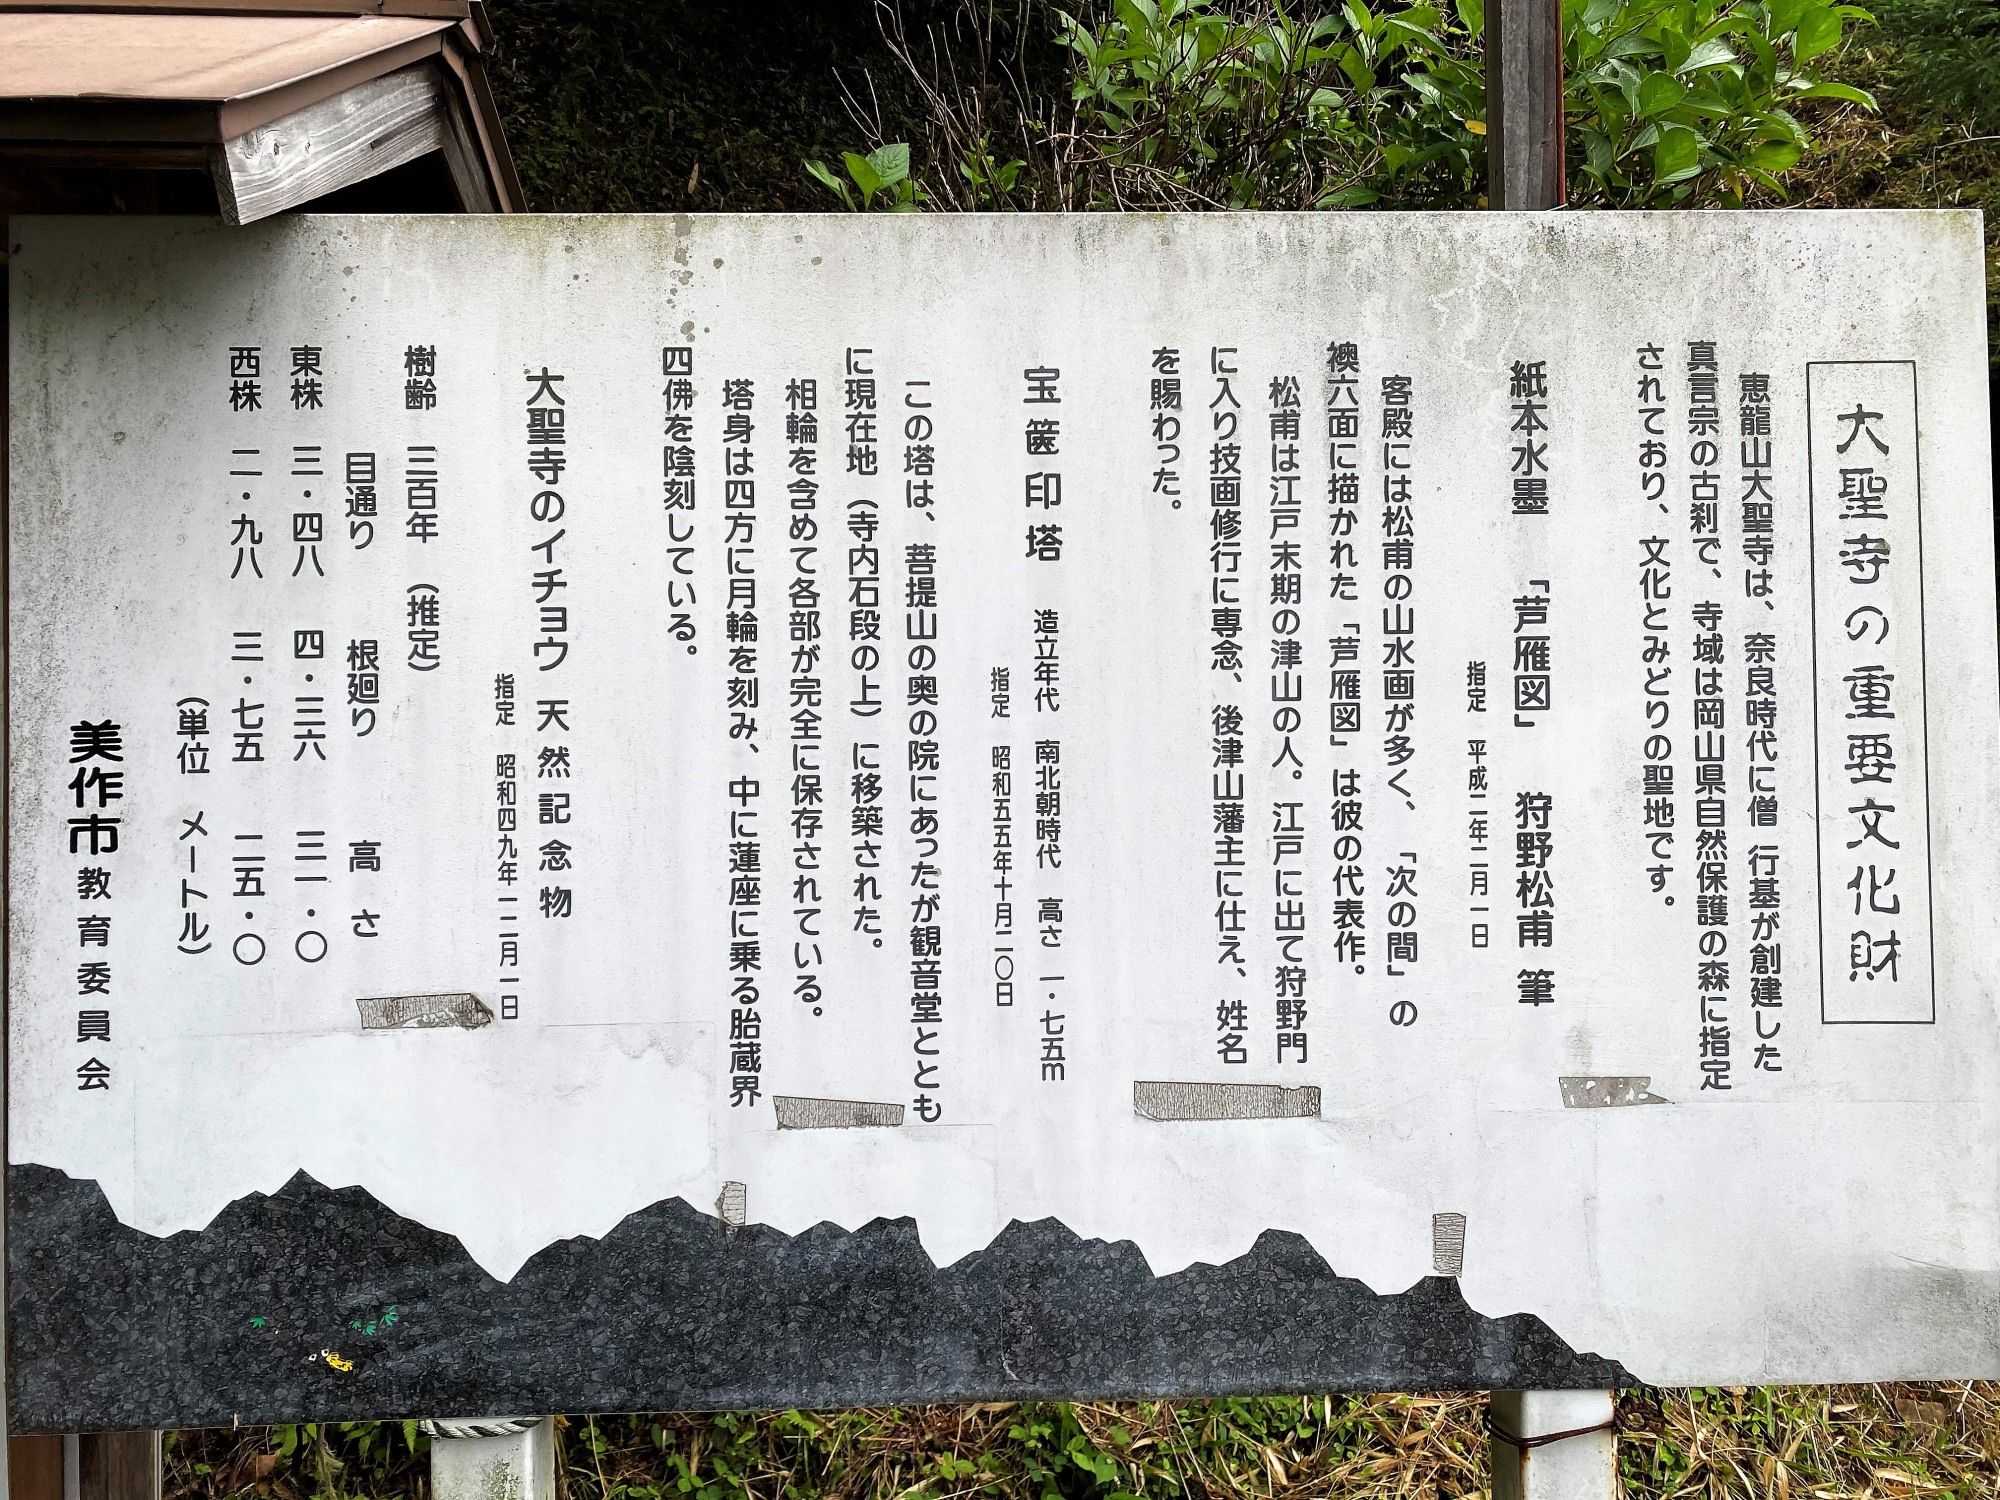 大聖寺の重要文化財
恵龍山大聖寺は、奈良時代に僧 行基が創建した
真言宗の古刹で、寺域は岡山県自然保護の森に指定
されており、文化とみどりの聖地です。
紙本水墨 「芦雁図」 狩野松甫 筆
指定 平成二年二月一日
客殿には松甫の山水画が多く、「次の間」の
襖六面に描かれた「芦雁図」は彼の代表作。
松甫は江戸末期の津山の人。江戸に出て狩野門
に入り技画修行に専念、後津山藩主に仕え、姓名
を賜わった。
宝篋印塔 造立年代 南北朝時代 高さ 一・七五m
指定 昭和五五年十月二〇日
この塔は、菩提山の奥の院にあったが観音堂ととも
に現在地（寺内石段の上）に移築された。
相輪を含めて各部が完全に保存されている。
塔身は四方に月輪を刻み、中に蓮座に乗る胎蔵界
四佛を陰刻している。
大聖寺のイチョウ 天然記念物
指定 昭和四九年一二月一日
樹齢 三百年 （推定）
目通り 根廻り 高さ
東株 三・四八 四・三六 三一・〇
西株 二・九八 三・七五 二五・〇
（単位 メートル）
美作市教育委員会